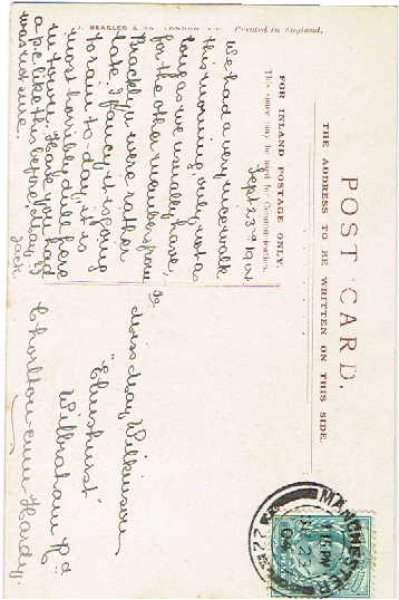 J. BEAGLES & CO. LONDON E.C.
Printed in England.
POST CARD.
THE ADDRESS TO BE WRITTEN ON THIS SIDE.
FOR INLAND POSTAGE ONLY.
This space may be used for Communication.
Sept 23rd 1904
We had a very nice walk
this morning, only not as
long as we usually have,
for the other members from
Brackly were rather
late. I fancy it is going
to rain to-day, it is
most horribly dull here
in town. Have you had
a p.c. like this before, May, I
was not sure.
Jack
To
Miss May Wilkinson,
"Elmshurst"
Wilbraham Rd
Chorlton-cum-Hardy.
MANCHESTER
1.15 PM
SP 23
04